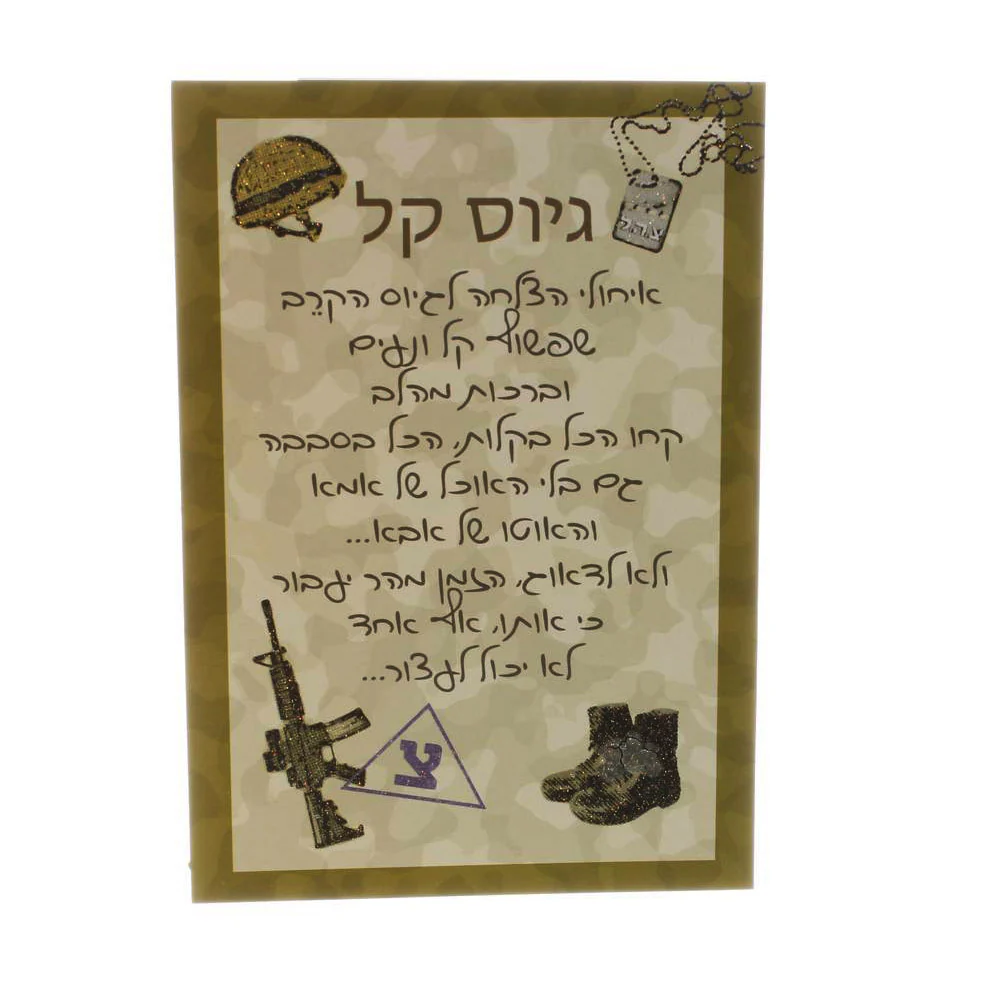 גיוס קל
צ.ה.ל
איחולי הצלחה לגיוס הקרֵב
שפשוף קל ונעים
וברכות מהלב
קחו הכל בקלות, הכל בסבבה
גם בלי האוכל של אמא
והאוטו של אבא...
ולא לדאוג, הזמן מהר יעבור
כי אותו, אף אחד
לא יכול לעצור...
צ